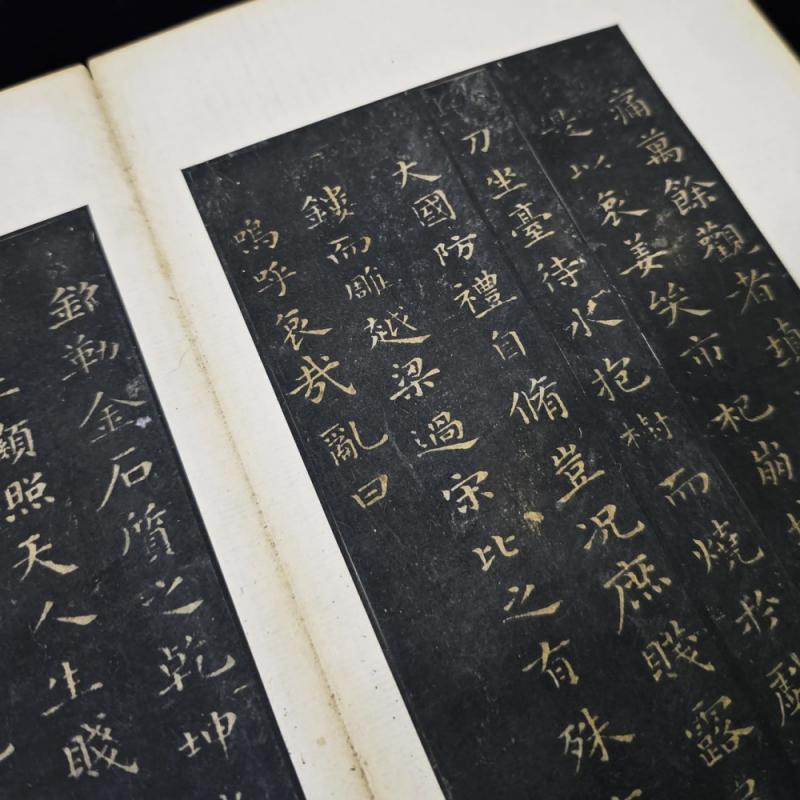 痛萬餘觀者填
是以哀姜哭市杞崩
刀坐臺待水抱樹而燒於戲
大國防禮自脩豈況庶賤露
鏤而雕越梁過宋比之有殊
嗚呼哀哉亂曰
銘勒金石質之乾坤
土顯照天人生賤